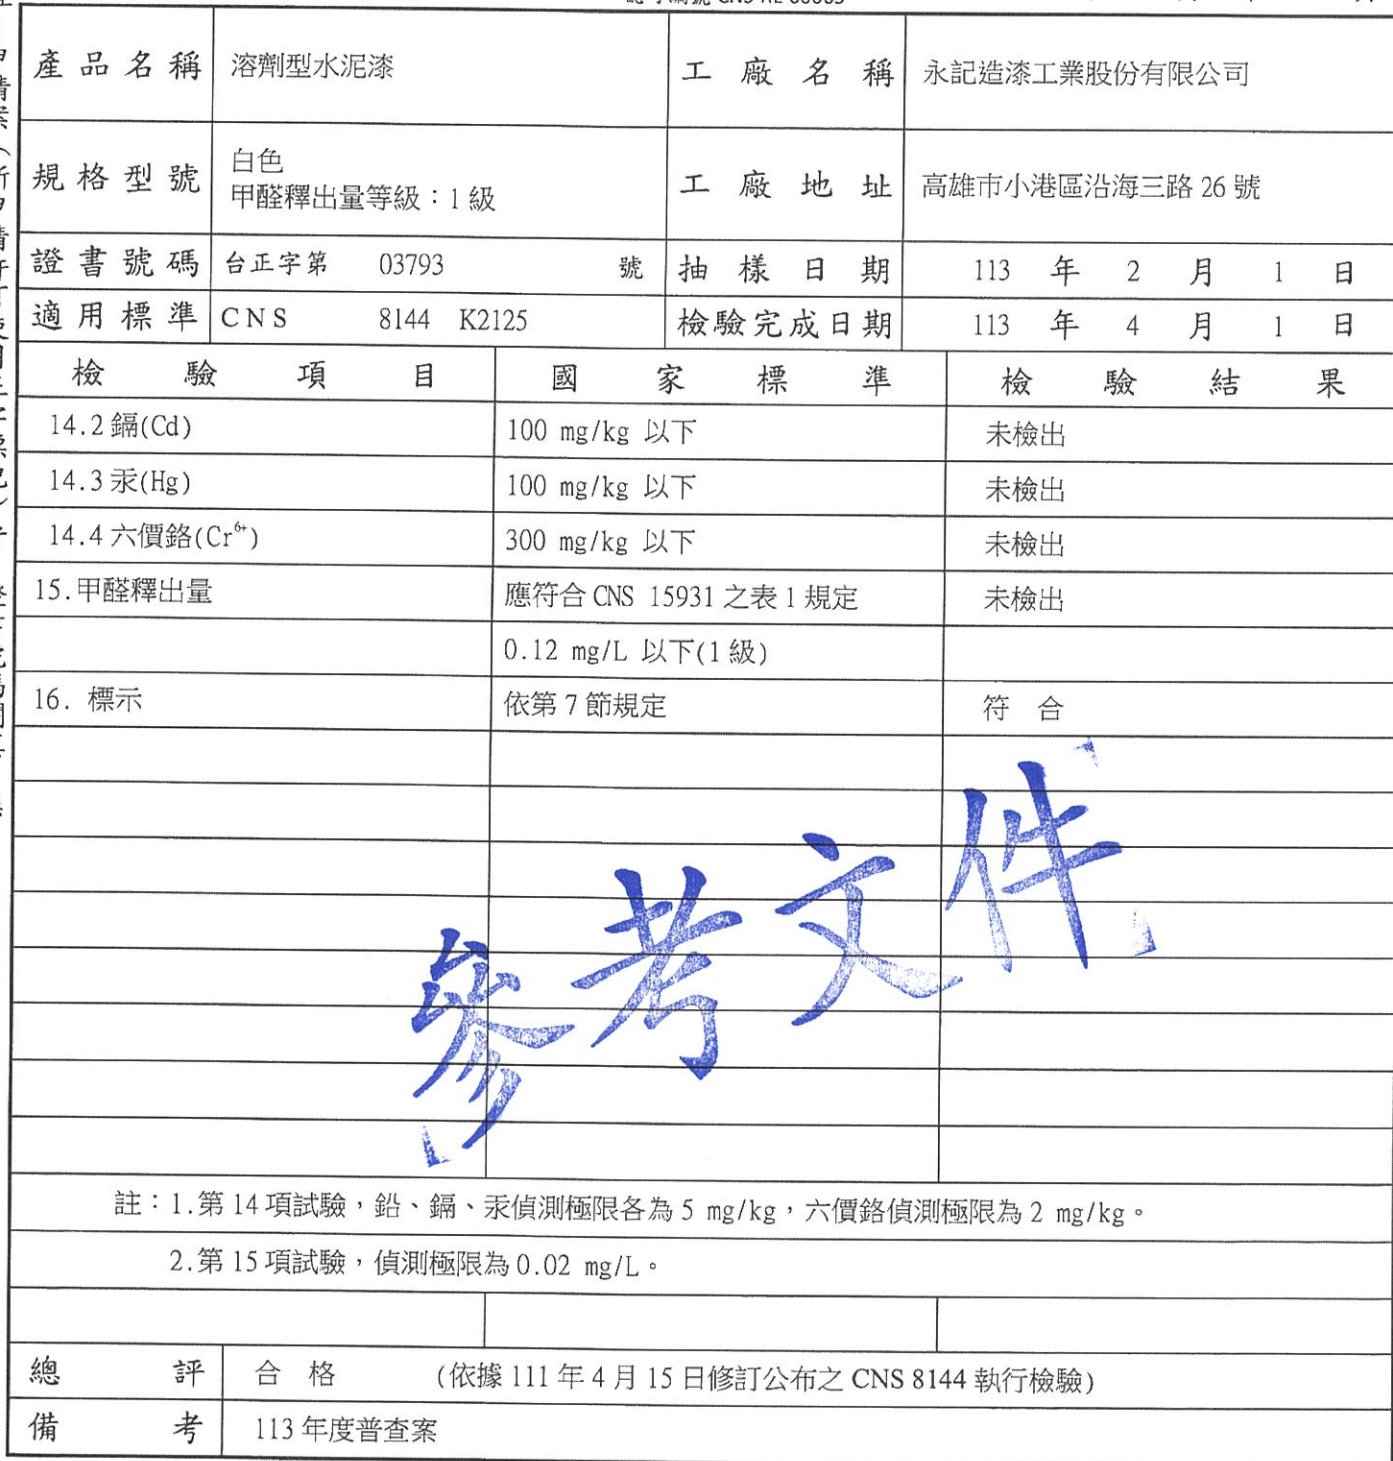 產品名稱 溶劑型水泥漆 工廠名稱 永記造漆工業股份有限公司
規格型號 白色 工廠地址 高雄市小港區沿海三路 26 號
甲醛釋出量等級：1 級
證書號碼 台正字第 03793 號 抽樣日期 113 年 2 月 1 日
適用標準 CNS 8144 K2125 檢驗完成日期 113 年 4 月 1 日
檢驗項目 國家標準 檢驗結果
14.2 鎘(Cd) 100 mg/kg 以下 未檢出
14.3 汞(Hg) 100 mg/kg 以下 未檢出
14.4 六價鉻(Cr⁶⁺) 300 mg/kg 以下 未檢出
15.甲醛釋出量 應符合 CNS 15931 之表 1 規定 未檢出
0.12 mg/L 以下(1 級)
16. 標示 依第 7 節規定 符 合
「參考文件」
註：1.第 14 項試驗，鉛、鎘、汞偵測極限各為 5 mg/kg，六價鉻偵測極限為 2 mg/kg。
2.第 15 項試驗，偵測極限為 0.02 mg/L。
總評 合 格 (依據 111 年 4 月 15 日修訂公布之 CNS 8144 執行檢驗)
備考 113 年度普查案